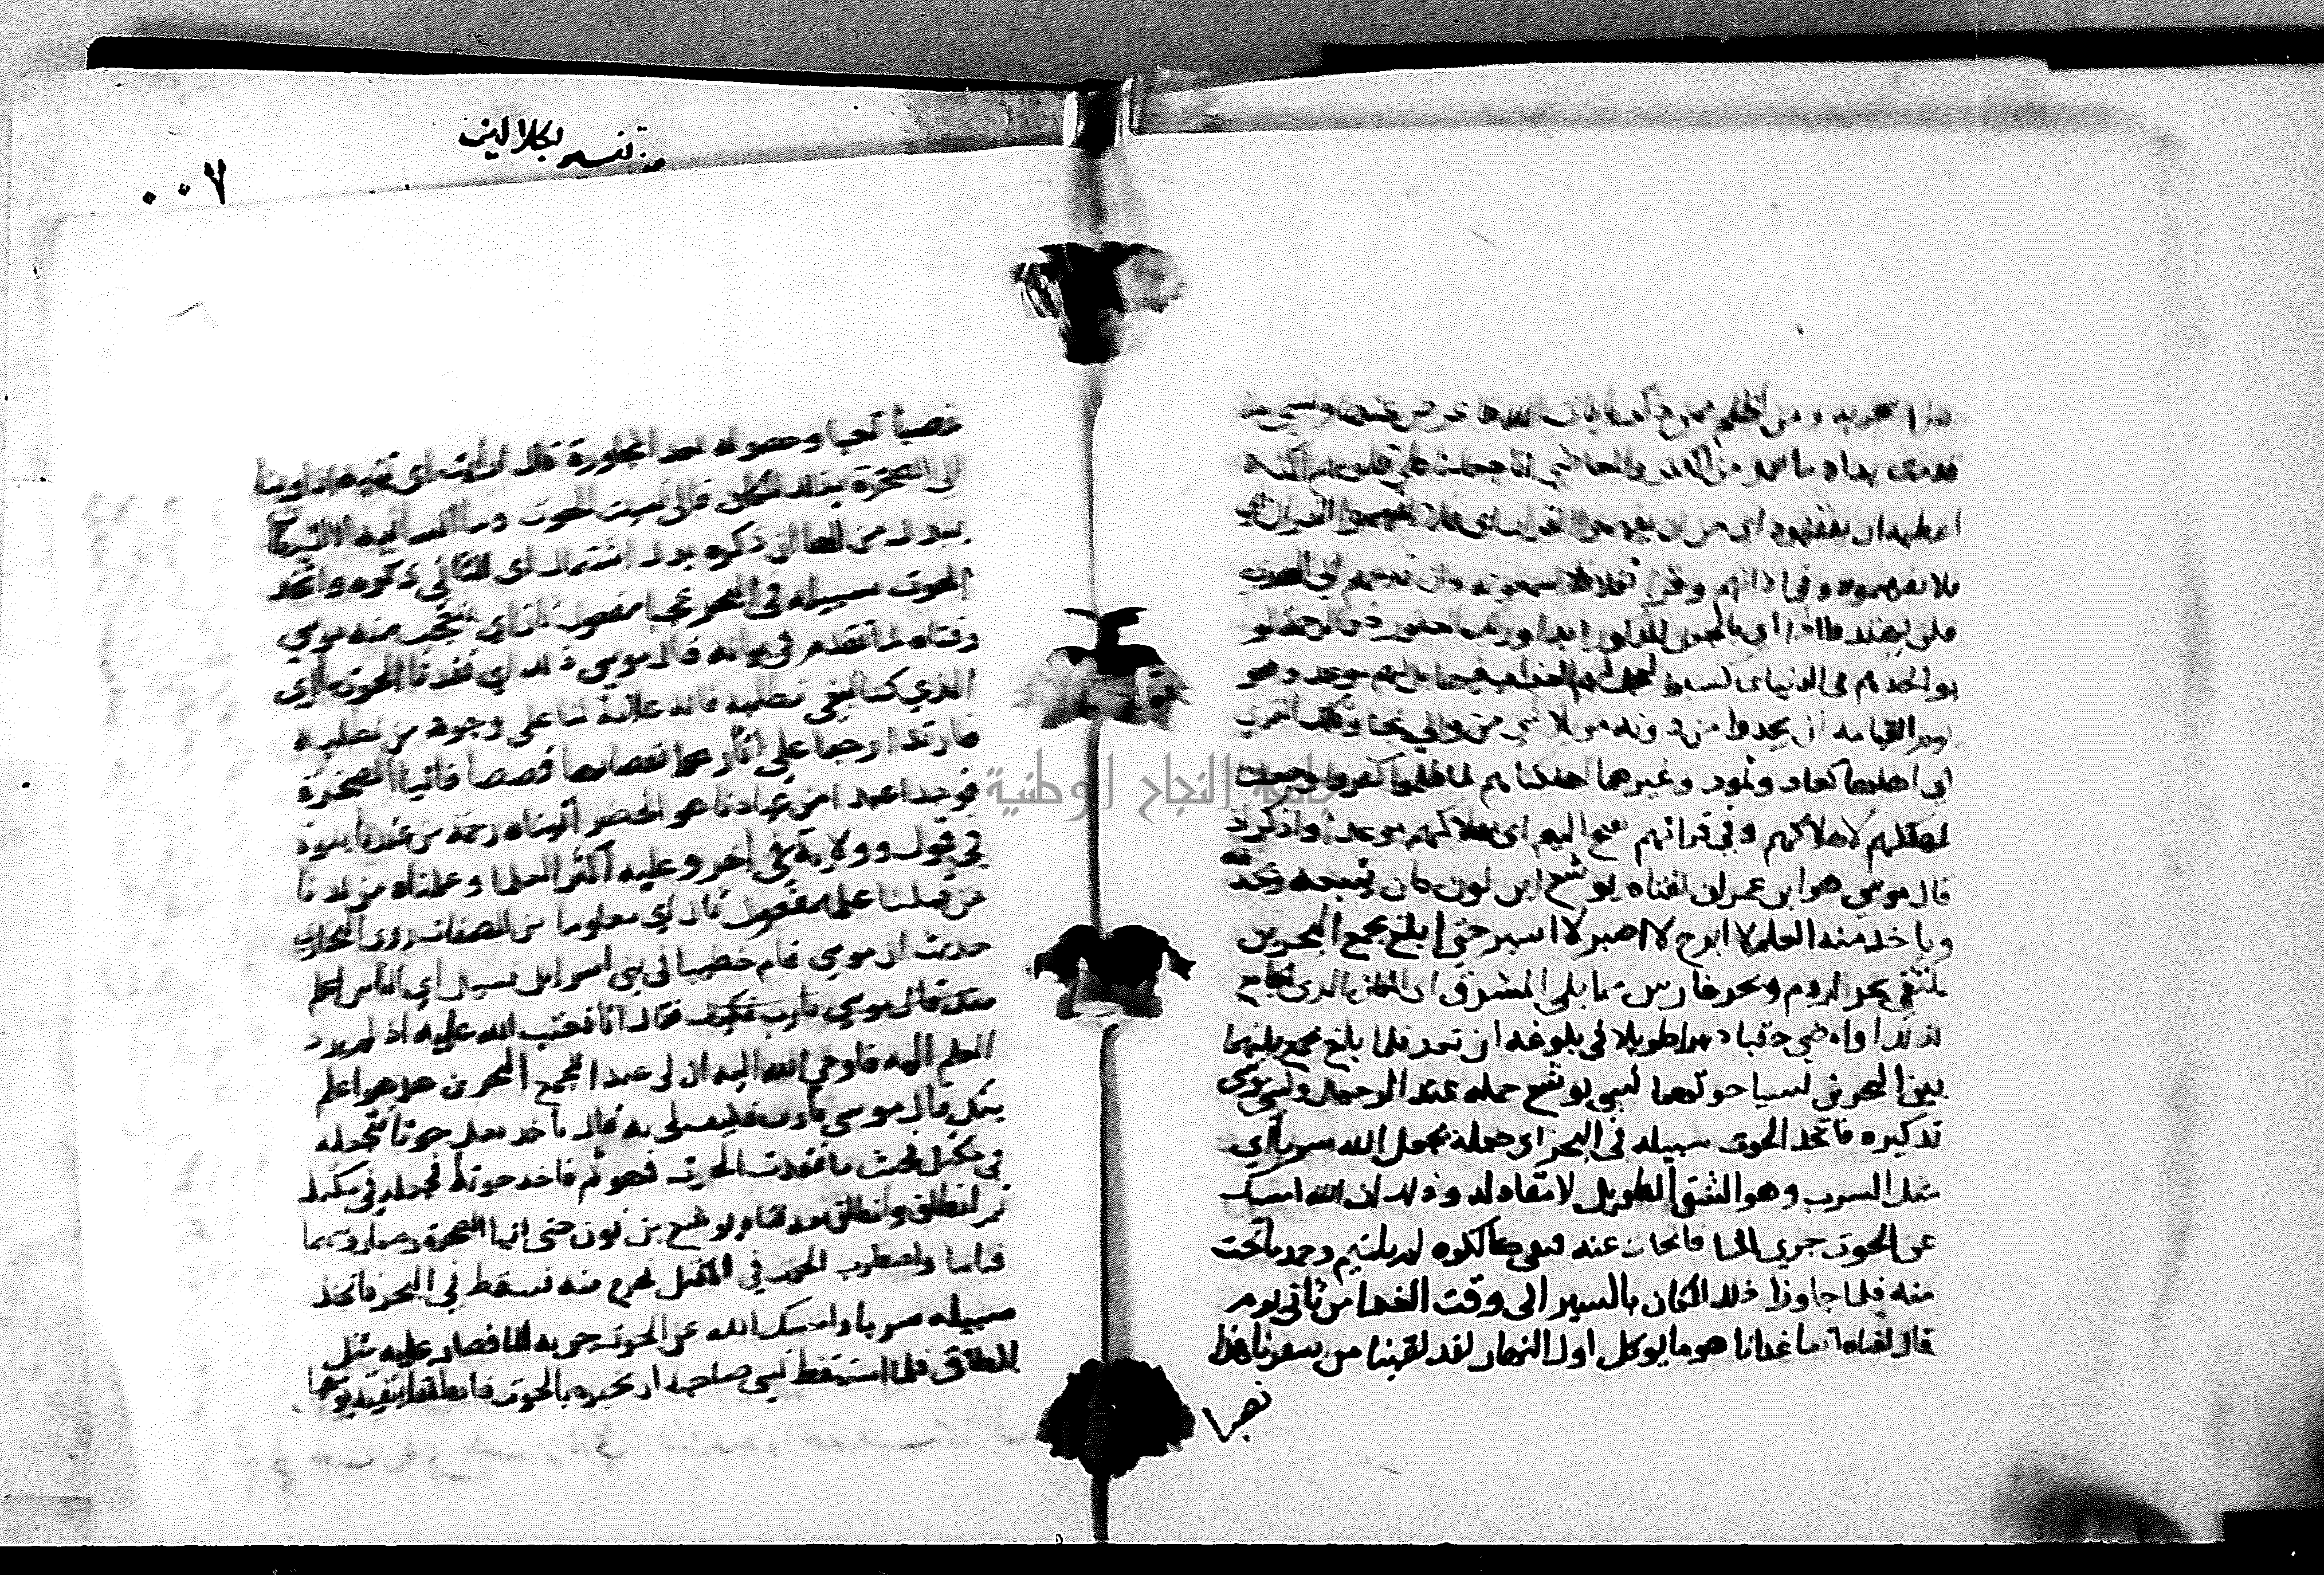 تفسير الجلالين
٠٠٧
هزا سخريه ومن أظلم ممن ذكر بايات
قدمت يداه ما عمل من الكفر والمعاصي انا جعلنا على قلوبهم اكنة
اغطية ان يفقهوه اى من ان يفهموا القران اى فلا يفهموا
فلا يفهموه وفي اذانهم وقرا ثقلا فلا يسمعونه وان تدعهم الى الهدى
فلن يهتدوا اذا اى بالجعل المذكور ابدا وربك الغفور ذو الرحمة لو
يواخذهم فى الدنيا بما كسبوا لعجل لهم العذاب فيها بل لهم موعد وهو
يوم القيامه لن يجدوا من دونه موئلا
اى اهلها كعاد وثمود وغيرهما اهلكناهم لما ظلموا كفروا وجعلنا
لمهلكهم لاهلاكهم وفي قراءة بفتح الميم اى لهلاكهم موعدا واذكر اذ
قال موسي هو ابن عمران لفتاه يوشع ابن نون كان يتبعه ويخدمه
وياخذ منه العلم لا ابرح لا اصبر لا اسير حتى ابلغ مجمع البحرين
ملتقي بحر الروم وبحر فارس مما يلي المشرق اى المكان الجامع
لذلك او امضي حقبا دهرا طويلا في بلوغه ان بعد فلما بلغ مجمع بينهما
بين البحرين نسيا حوتهما نسي يوشع حمله عند الرحيل ونسي موسى
تذكيره فاتخذ الحوت سبيله فى البحر اى جعله بجعل الله سربا اى
مثل السرب وهو الشق الطويل لا نفاذ له وذلك ان الله امسك
عن الحوت جري الما فانجاب عنه فبقي كالكوه لم يلتيم وجمد ما تحت
منه فلما جاوزا ذلك المكان بالسير الى وقت الغدا من ثاني يوم
قال لفتاه اتنا غدانا هو ما يوكل اول النهار لقد لقينا من سفرنا هذا
نصبا
نصبا تعبا وحصوله بعد المجاوزة قال ارايت اى تنبه اذ اوينا
الى الصخرة بذلك المكان فاني نسيت الحوت وما انسانيه الا الشيطان
يبدل من الها ان اذكره بدل اشتمال اى انساني ذكره واتخذ
الحوت سبيله فى البحر عجبا مفعول ثان اى يتعجب منه موسي
وفتاه لما تقدم فى بيانه قال موسى ذلك اى فقدنا الحوت اى
الذي كنا نبغي نطلبه فانه علامة لنا على وجود من نطلبه
فارتدا رجعا على اثارهما يقصانها قصصا فاتيا الصخرة
فوجدا عبدا من عبادنا هو الخضر اتيناه رحمة من عندنا نبوة
في قول وولاية في اخر وعليه اكثر العلما وعلمناه من لدنا
من قبلنا علما مفعول ثان اى معلوما من المغيبات روى البخاري
حديث ان موسي قام خطيبا في بني اسرايل فسيل اي الناس اعلم
فقال انا فعتب الله عليه اذ لم يرد
العلم اليه فاوحي الله اليه ان لي عبدا بمجمع البحرين هو اعلم
منك قال موسى يارب فكيف لي به قال تاخذ معك حوتا فتجعله
في مكتل فحيث ما فقدت الحوت فهو ثم فاخذ حوتا فجعله في مكتل
ثم انطلق وانطلق معه فتاه يوشع بن نون حتى اتيا الصخرة
فناما واضطرب الحوت في المكتل فخرج منه فسقط في البحر فاتخذ
سبيله سربا وامسك الله عن الحوت جريه الما فصار عليه مثل
الطاق فلما استيقظ نسي صاحبه ان يخبره بالحوت فانطلقا بقية يومهما
جامعة النجاح الوطنية